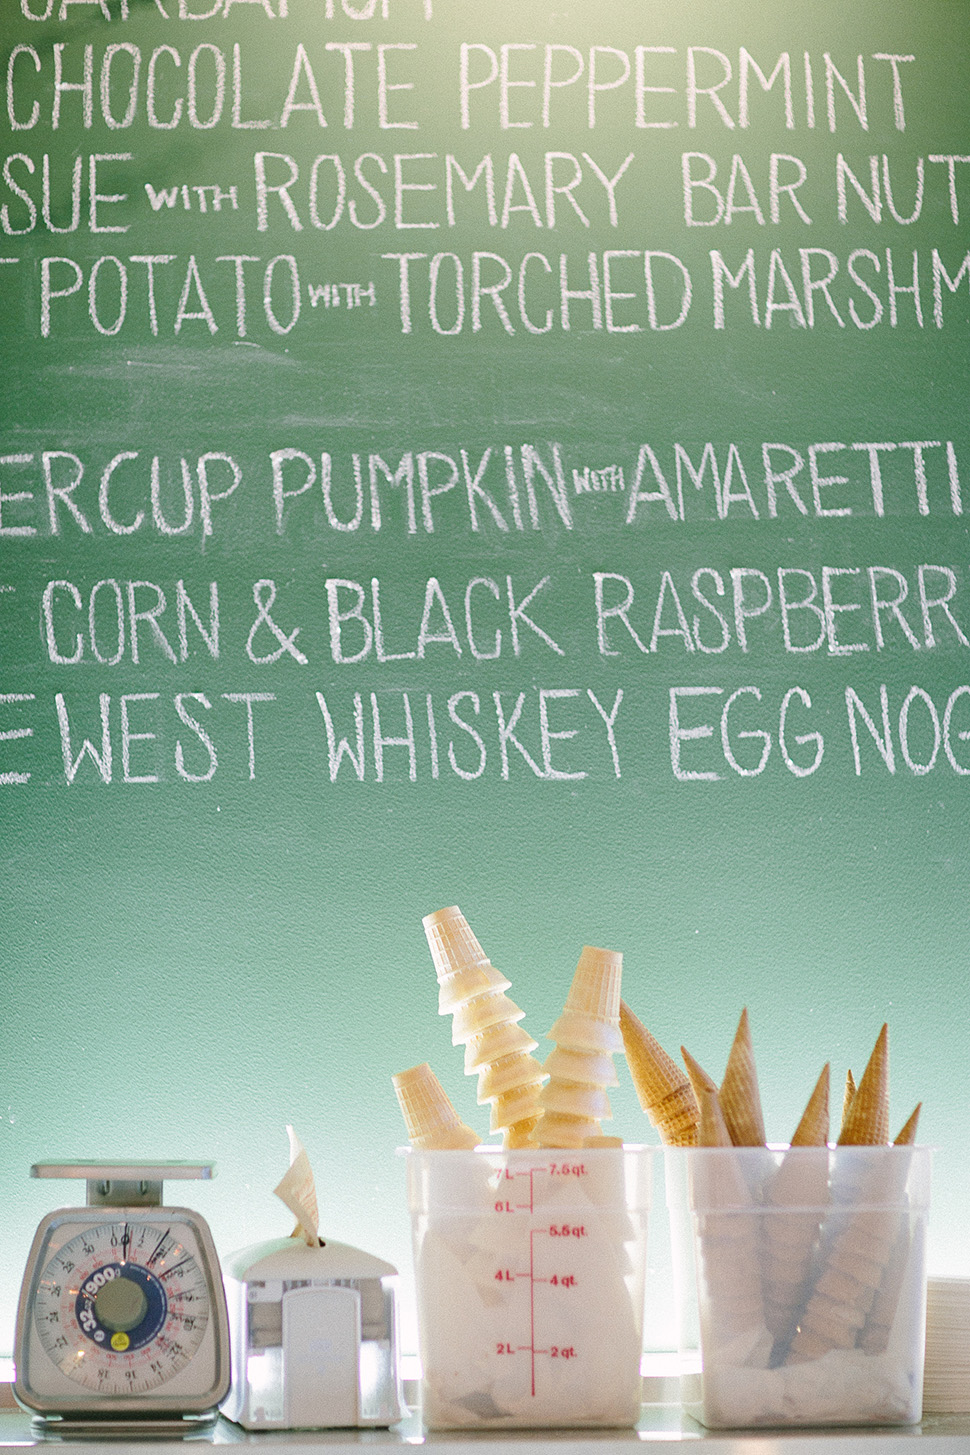 CARDAMOM
CHOCOLATE PEPPERMINT
SUE WITH ROSEMARY BAR NUT
T POTATO WITH TORCHED MARSHM
ERCUP PUMPKIN WITH AMARETTI
E CORN & BLACK RASPBERR
E WEST WHISKEY EGG NOG
7L 7.5qt.
6L
5.5qt.
4L 4qt.
2L 2qt.
0
30
28
26
24
22
18
16
14
32
900